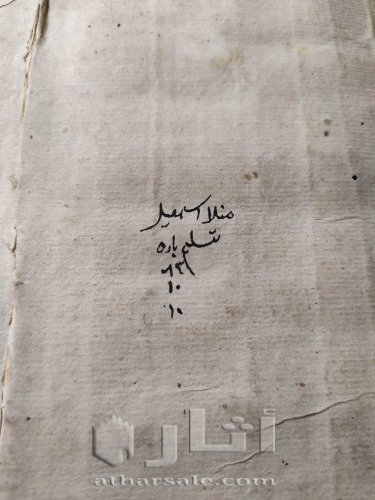 منلا اسمعيل
تسليم پاره
١٠
١٠
آثار
atharsale.com